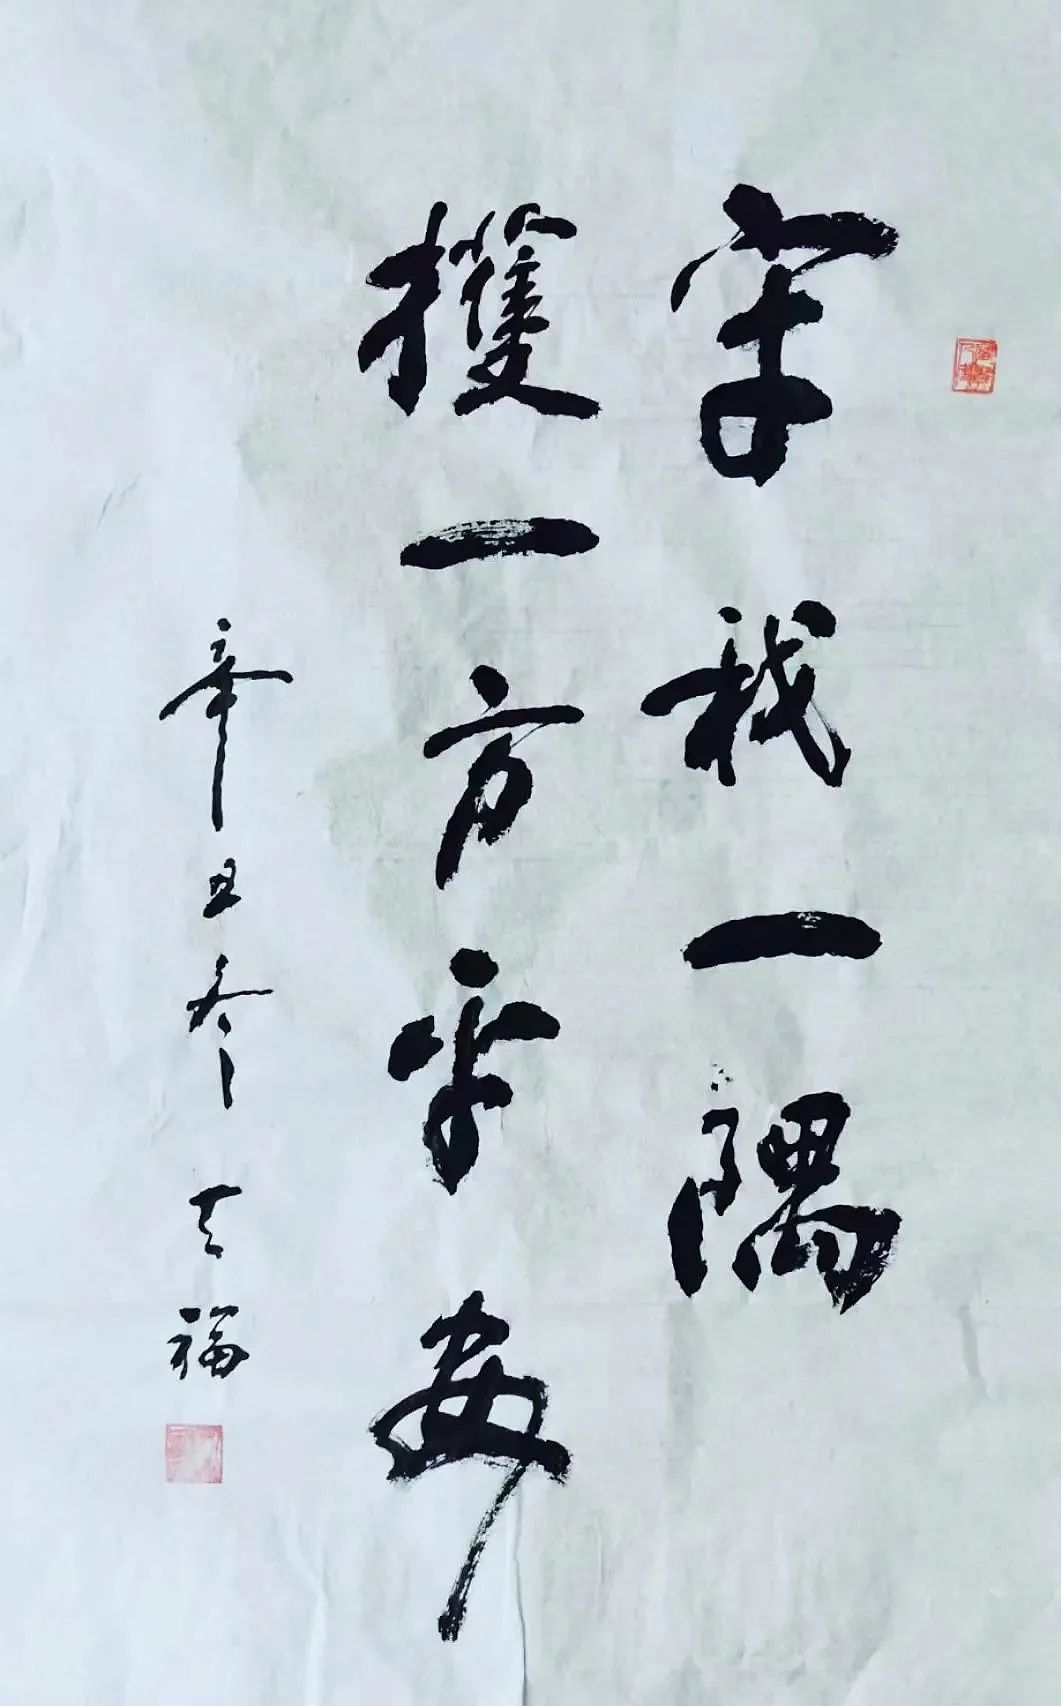 守我一隅
擭一方平安
辛丑冬 福